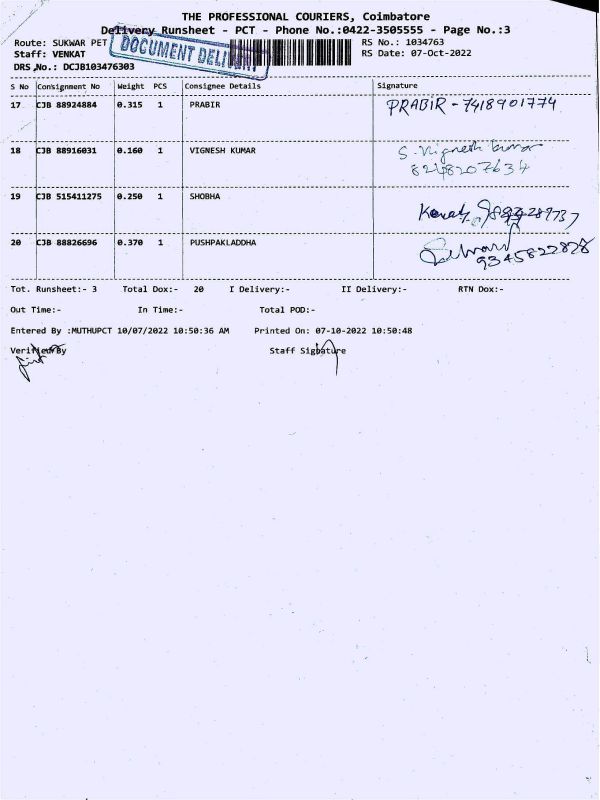 THE PROFESSIONAL COURIERS, Coimbatore
Delivery Runsheet - PCT - Phone No.:0422-3505555 - Page No.:3
Route: SUKWAR PET
DOCUMENT DELIVERY
RS No.: 1034763
Staff: VENKAT
RS Date: 07-Oct-2022
DRS No.: DCJB103476303
S No Consignment No Weight PCS Consignee Details Signature
17 CJB 88924884 0.315 1 PRABIR PRABIR - 7418901774
18 CJB 88916031 0.160 1 VIGNESH KUMAR S. Vignesh Kumar
8248207634
19 CJB 515411275 0.250 1 SHOBHA
20 CJB 88826696 0.370 1 PUSHPAKLADDHA
9345822828
Tot. Runsheet:- 3 Total Dox:- 20 I Delivery:- II Delivery:- RTN Dox:-
Out Time:- In Time:- Total POD:-
Entered By :MUTHUPCT 10/07/2022 10:50:36 AM Printed On: 07-10-2022 10:50:48
Verified By Staff Signature